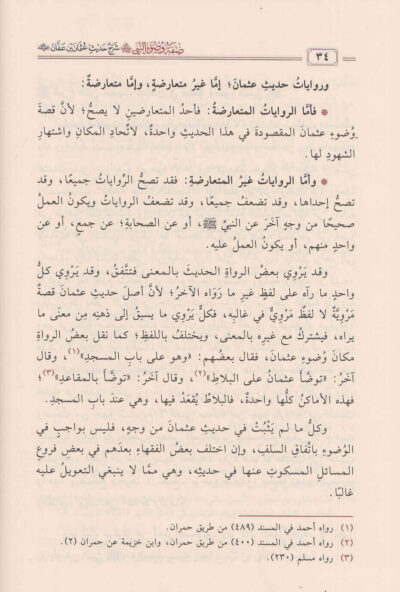 ٣٤
صفة وضوء النبي ﷺ شرح حديث عثمان بن عفان
ورواياتُ حديثِ عثمانَ؛ إمَّا غيرُ متعارضةٍ، وإمَّا متعارضةٌ:
* فأمَّا الرواياتُ المتعارضةُ: فأحدُ المتعارضينِ لا يصحُّ؛ لأنَّ قصةَ
وُضوءِ عثمانَ المقصودةَ في هذا الحديثِ واحدةٌ، لاتِّحادِ المكانِ واشتهارِ
الشهودِ لها.
* وأمَّا الرواياتُ غيرُ المتعارضةِ: فقد تصحُّ الرِّواياتُ جميعًا، وقد
تصحُّ إحداها، وقد تضعفُ جميعًا، وقد تضعفُ الرواياتُ ويكونُ العملُ
صحيحًا من وجهٍ آخَرَ عن النبيِّ ﷺ، أو عن الصحابةِ؛ عن جمعٍ، أو عن
واحدٍ منهم، أو يكونُ العملُ عليه.
وقد يَرْوِي بعضُ الرواةِ الحديثَ بالمعنى فتتَّفقُ، وقد يَرْوِي كلُّ
واحدٍ ما رآه على لفظٍ غيرِ ما رَوَاه الآخرُ؛ لأنَّ أصلَ حديثِ عثمانَ قصةٌ
مَرْوِيَّةٌ لا لفظٌ مَرْوِيٌّ في غالبِه، فكلٌّ يَرْوِي ما يسبقُ إلى ذهنِه مِن معنَى ما
يراه، فيشتركُ مع غيرِه بالمعنى، ويختلفُ باللفظِ؛ كما نقل بعضُ الرواةِ
مكانَ وُضوءِ عثمانَ، فقال بعضُهم: «وهو على بابِ المسجدِ»(١)، وقال
آخَرُ: «توضَّأ عثمانُ على البلاطِ»(٢)، وقال آخَرُ: «توضَّأ بالمقاعدِ»(٣)؛
فهذه الأماكنُ كلُّها واحدةٌ، فالبلاطُ يُقعَدُ فيها، وهي عندَ بابِ المسجدِ.
وكلُّ ما لم يَثْبُتْ في حديثِ عثمانَ من وجهٍ، فليس بواجبٍ في
الوُضوءِ باتِّفاقِ السلفِ، وإن اختلف بعضُ الفقهاءِ بعدَهم في بعضِ فروعِ
المسائلِ المسكوتِ عنها في حديثِه، وهي ممَّا لا ينبغي التعويلُ عليه
غالبًا.
(١) رواه أحمد في المسند (٤٨٩) من طريق حمران.
(٢) رواه أحمد في المسند (٤٠٠) من طريق حمران، وابن خزيمة عن حمران (٢).
(٣) رواه مسلم (٢٣٠).